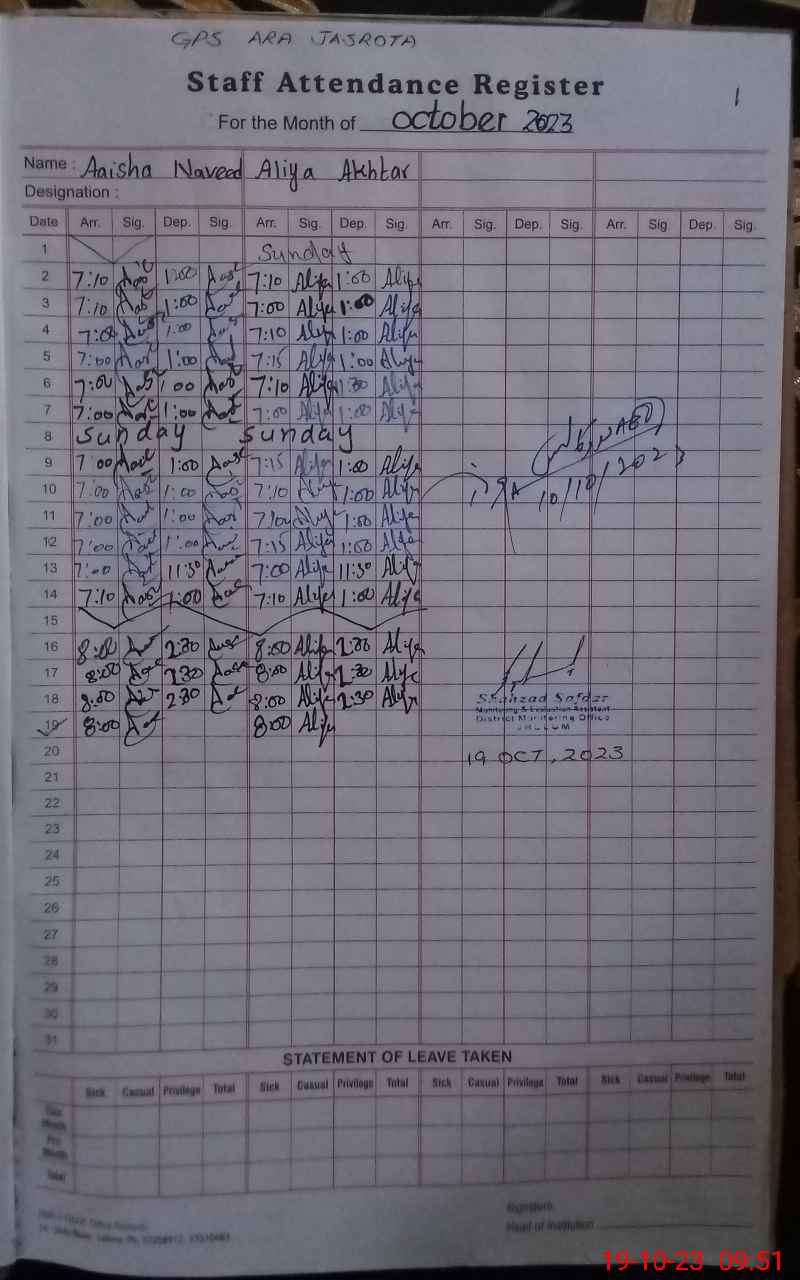 GPS ARA JASROTA
Staff Attendance Register
1
For the Month of October 2023
Name : Aaisha Naveed Aliya Akhtar
Designation :
Date Arr. Sig. Dep. Sig. Arr. Sig. Dep. Sig. Arr. Sig. Dep. Sig. Arr. Sig. Dep. Sig.
1 Sunday
2 7:10 1:00 7:10 Aliya 1:00 Aliya
3 7:10 1:00 7:00 Aliya 1:00 Aliya
4 7:00 1:00 7:10 Aliya 1:00 Aliya
5 7:00 1:00 7:15 Aliya 1:00 Aliya
6 7:00 1:00 7:10 Aliya Aliya
7 7:00 1:00 7:00 Aliya 1:00 Aliya
8 Sunday Sunday
9 7:00 1:00 7:15 Aliya 1:00 Aliya
10 7:00 1:00 7:10 Aliya 1:00 Aliya
10/10/2023
11 7:00 1:00 7:10 Aliya 1:00 Aliya
12 7:00 1:00 7:15 Aliya 1:00 Aliya
13 7:00 11:30 7:00 Aliya 11:30 Aliya
14 7:10 1:00 7:10 Aliya 1:00 Aliya
15
16 8:00 2:30 8:00 Aliya 2:30 Aliya
17 8:00 2:30 8:00 Aliya 2:30 Aliya
18 8:00 2:30 8:00 Aliya 2:30 Aliya
Shahzad Safdar
Monitoring & Evaluation Assistant
District Monitoring Office
JHELUM
19 8:00 8:00 Aliya
19 OCT, 2023
20
21
22
23
24
25
26
27
28
29
30
31
STATEMENT OF LEAVE TAKEN
Sick Casual Privilege Total Sick Casual Privilege Total Sick Casual Privilege Total Sick Casual Privilege Total
Month
Pre Month
Total
Signature
Head of Institution
19-10-23 09:51